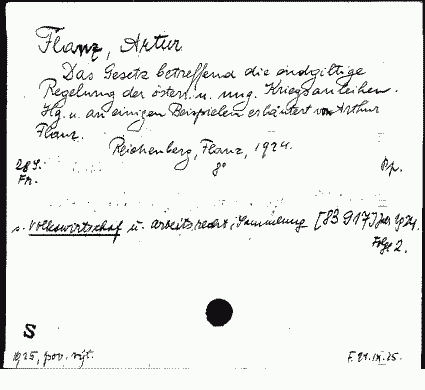 Flanz, Artur
Das Gesetz betreffend die endgiltige
Regelung der österr. u. ung. Kriegsanleihen.
Hg. u. an einigen Beispielen erläutert von Arthur
Flanz.
Reichenberg, Flanz, 1924.
28 S. 8° Rp.
Fr.
s. Volkswirtschaf u. Arbeitsrecht, Sammlung [83917] Jg. 1924.
Folge 2.
S
1925, pov. výt. F. 21.IX.25.